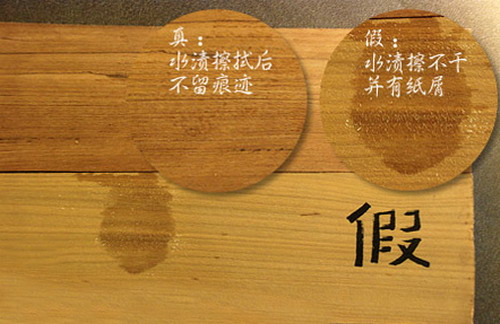 真：
水渍擦拭后
不留痕迹
假：
水渍擦不干
并有纸屑
假